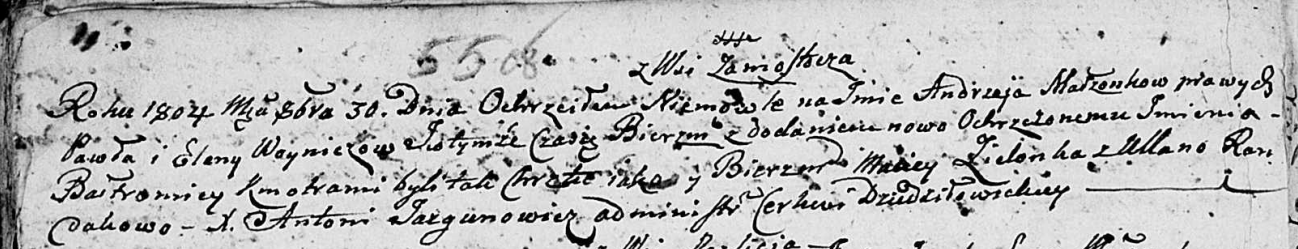 5568
z Wsi Zamosbcza
Roku 1804 Mca 8bra 30. Dnia Ochrzciłem Niemowle na Jmie Andrzeja Małzonkow prawych
Pawła i Eleny Woyniczow Totymże Czasie Bierzm z dodaniem nowo Ochrzczonemu Jmienia -
Bałtromiey Kmotrami byli tak Chrztu iako y Bierzm Maciey Zielonka z Ullano Ran
dakowo - X. Antoni Jazgunowicz administr Cerkwi Dziedziłowickiey